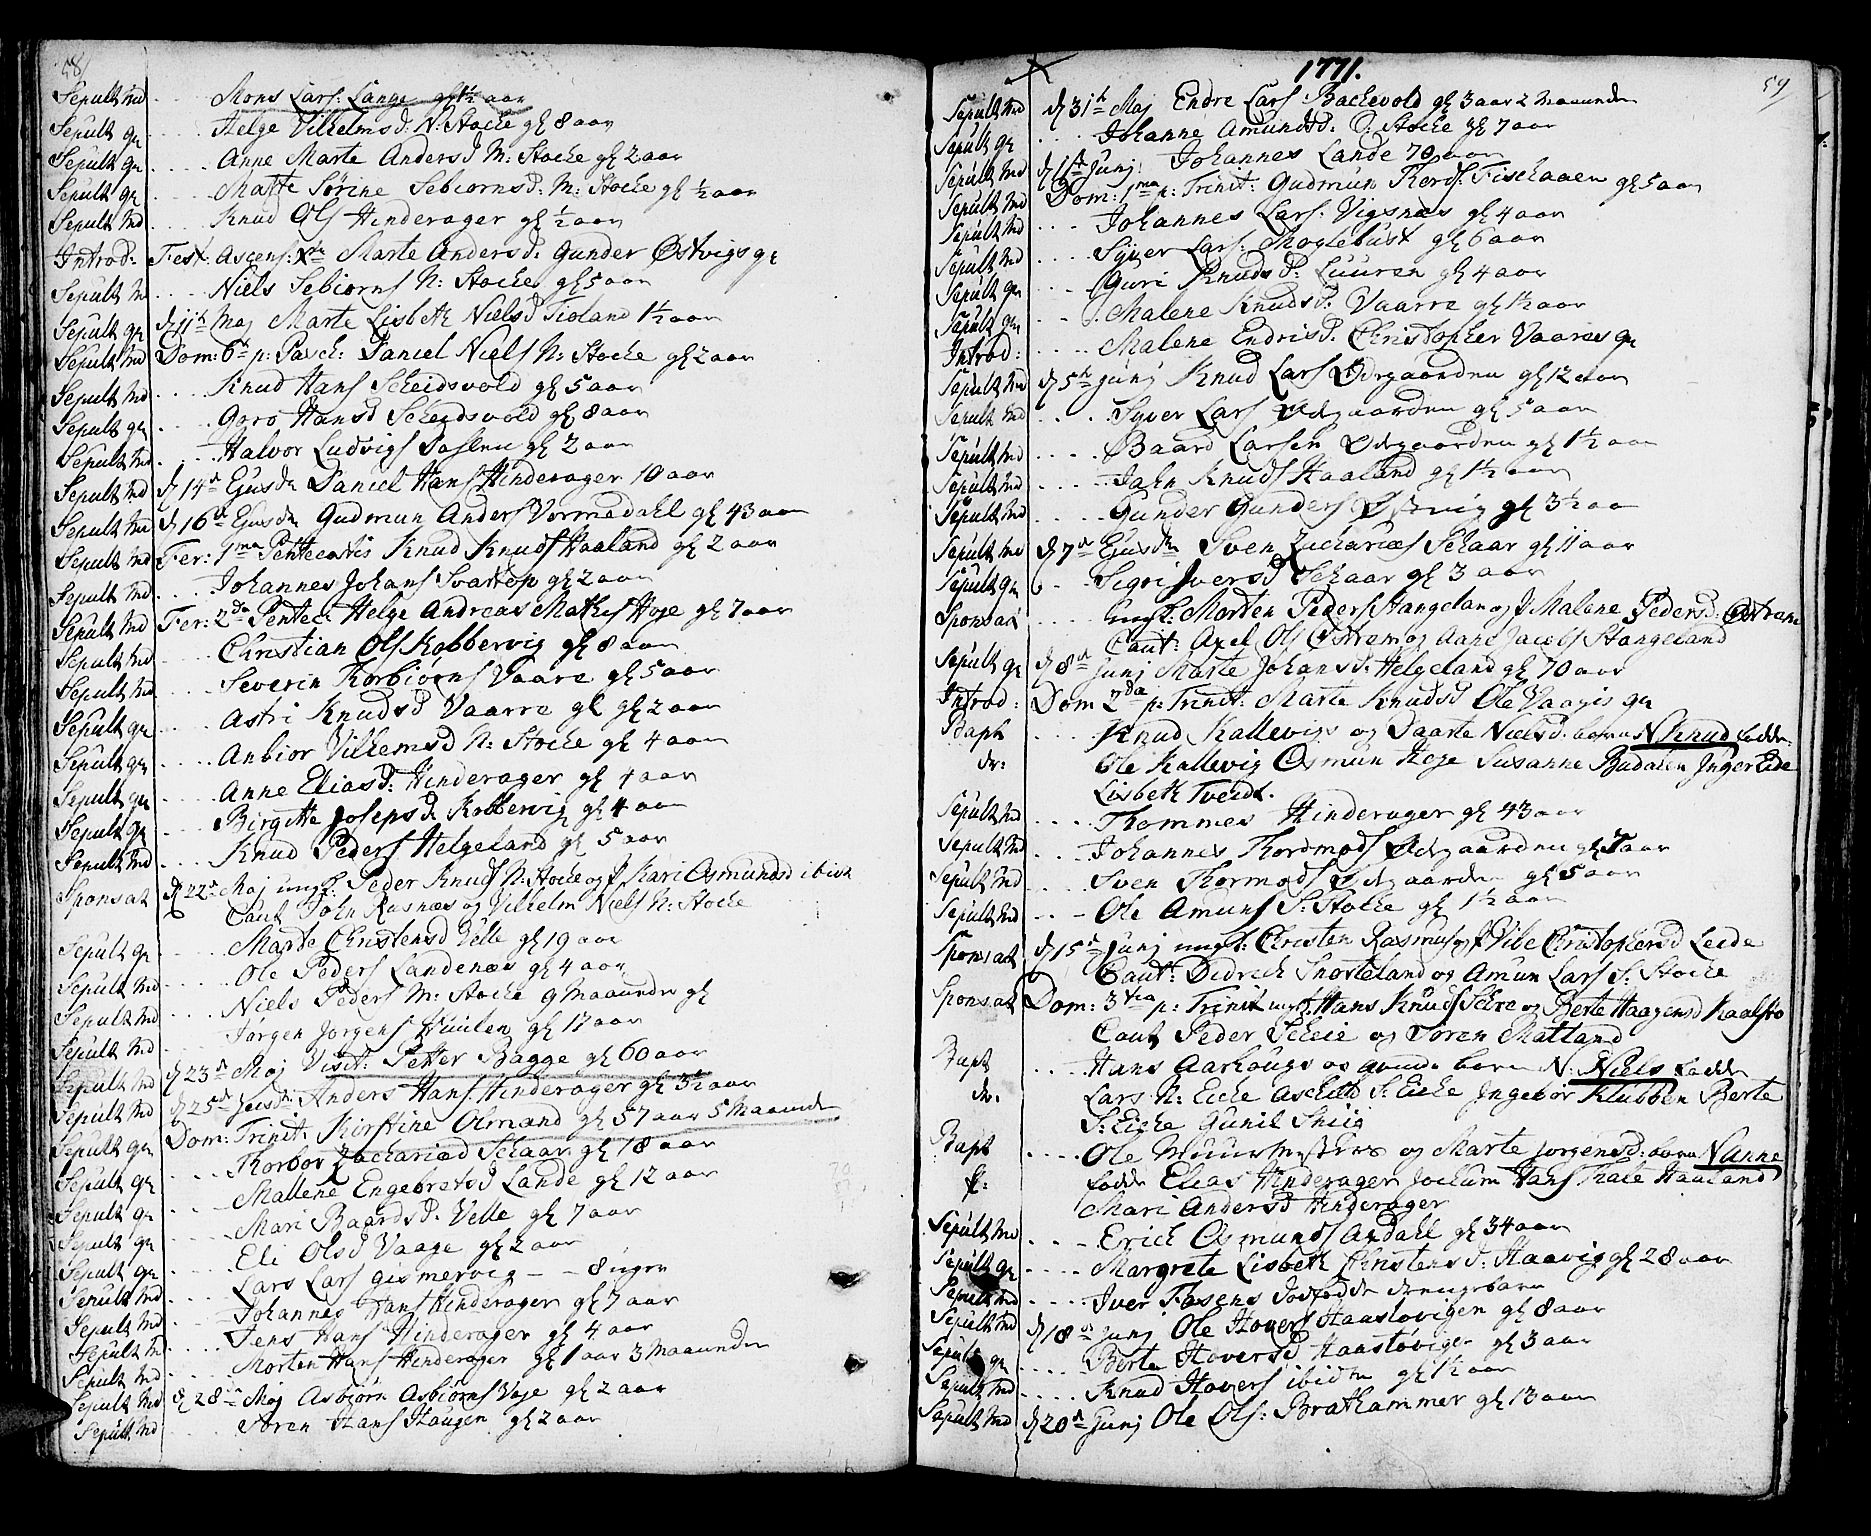 58
Sepult md .... Mons Lars: Lange gl 1½ aar
Sepult qv .... Helge Vilhelmsd: N: Stoche gl 8 aar
Sepult qv .... Anne Marte Andersd M: Stoche gl 2 aar
Sepult qv .... Mette Sørine Sebiørnsd: M: Stoche gl ½ aar
Sepult md .... Knud Ols Hinderager gl ½ aar
Introd: Fest: Ascens: Xti Marte Andersd. Gunder Østvigs qv
Sepult md .... Niels Sebiørns N: Stoche gl 5 aar
Sepult qv d 11te Maj Marte Lisbeth Nielsd Fioland 1½ aar
Sepult md Dom: 6te p: Pasch: Daniel Niels N: Stoche gl 2 aar
Sepult md .... Knud Hans Scheidsvold gl 5 aar
Sepult qv .... Goro Hansd Scheidsvold gl 8 aar
Sepult md .... Halvor Ludvigs gl 2 aar
Sepult md d 14de Ejusdm Daniel Hans Hinderager 10 aar
Sepult md d 16de Ejusdm Gudmun Anders Vormedahl gl 43 aar
Sepult md Fer: 1ma Pentecostis Knud Knuds Haaland gl 2 aar
Sepult md .... Johannes Johans Svartop gl 2 aar
Sepult md Fer: 2da Pentec: Helge Andreas Mathis Høje gl 7 aar
Sepult md .... Christian Ols Kobbervig gl 8 aar
Sepult md .... Severin Torbiørns Vaare gl 5 aar
Sepult qv .... Astri Knudsd Vaarre gl gl 2 aar
Sepult qv .... Anbior Vilhemsd N: Stoche gl 4 aar
Sepult qv .... Anne Eliasd: Hinderager gl 4 aar
Sepult qv .... Birgitte Josepsd Kobbervig gl 4 aar
Sepult md .... Knud Peders Helgeland gl 5 aar
Sponsat d 22de Maj ungk: Peder Knuds N: Stoche og P Kari Osmundsd ibid
Caut John Rasnæs og Vilhelm Niels N: Stoche
Sepult qv .... Marte Christensd Velle gl 19 aar
Sepult md .... Ole Peders Landenæs gl 4 aar
Sepult md .... Niels Peders M: Stoche 9 Maaneder gl
Sepult md .... Jørgen Jørgens gl 17 aar
Sepult md d 23de Maj Visit: Petter Bagge gl 60 aar
Sepult md d 25de Ejusdm Anders Hans Hinderager gl 3½ aar
Sepult qv Dom: Trinit: Kirstine Olmand gl 57 aar 5 Maaneder
Sepult qv .... Thorbor Zachariad Schaar gl 18 aar
Sepult qv .... Mallene Engebretsd Lande gl 12 aar
Sepult qv .... Mari Baardsd. Velle gl 7 aar
Sepult qv .... Eli Olsd Vaage gl 2 aar
Sepult md .... Lars Lars Gismervig - - 8 uger
Sepult md .... Johannes Hans Hinderager gl 7 aar
Sepult md .... Jens Hans Hinderager gl 4 aar
Sepult md .... Morten Hans Hinderager gl 1 aar 3 Maaneder
Sepult md d 28de Maj Asbjørn Asbiørns Voje gl 2 aar
Sepult md .... Søren Hans Haugen gl 2 aar
1771.
59
Sepult md d 31te Maj Endre Lars Bachevold gl 3 aar 2 Maaneder
Sepult qv .... Johanne Amundsd. S: Stoche gl 7 aar
Sepult md d 1ste Junj Johannes Lande 70 aar
Sepult md Dom: 1ma p: Trinit: Gudmun Thords: Fischaaen gl 5 aar
Sepult md .... Johannes Lars: Vigsnæs gl 4 aar
Sepult md .... Syver Lars: Moglebust gl 6 aar
Sepult qv .... Guri Knudsd. Luuren gl 4 aar
Sepult qv .... Malene Knudsd. Vaarre gl 1½ aar
Introd: .... Malene Endrisd. Christopher Vaares qv
Sepult md d 5te Junj Knud Lars Ødegaarden gl 12 aar
Sepult md .... Syver Lars Ødegaarden gl 5 aar
Sepult md .... Baard Larsen Ødegaarden gl 1½ aar
Sepult md .... Jahn Knuds Haaland gl 1½ aar
Sepult md .... Gunder Gunders Østvig gl 3½ aar
Sepult md d 7de Ejusdm Sven Zacharias Schaar gl 11 aar
Sepult qv .... Sigri Iversd Schaar gl 3 aar
Sponsat .... Ungk: Morten Peders Stangelan og P Malene Pedersd. Østrem
Caut: Axel Ols Østrem og Aanl Jacobs Stangeland
Sepult qv d 8de Junj Marte Johansd: Helgeland gl 70 aar
Introd: Dom 2da p: Trinit: Marte Knudsd Ole Vaagis qv
Bapt .... Knud Kallevigs og Daarte Nielsd. barn N: Knud fadde
dr: Ole Kallevig Osmun Høje Susanne Budalen Inger Eide
Lisbeth Tvedt.
Sepult md .... Thommes Hinderager gl 43 aar
Sepult md .... Johannes Thormods Ødegaarden gl 7 aar
Sepult md .... Sven Thormods Ødegaarden gl 5 aar
Sepult md .... Ole Amuns S: Stoche gl 1½ aar
Sponsat d 15de Junj ungk: Christen Rasmus og P Vibe Christophersd Leede
Caut: Didrich Snorteland og Amun Lars S: Stoche
Sponsat Dom: 3tia p: Trinit ungk: Hans Knuds Schre og Berte Haagensd Kaalsto
Caut Peder Scheie og Søren Matland
Bapt .... Hans Aarhougs og Gunde barn N: Niels fadde
dr. Lars N: Eiche Aschild S: Eiche Ingebor Klubben Berte
S: Eiche Gunil Shiig
Bapt .... Ole Muurmesters og Marte Jørgensd: barn N Anne
P: fadde Elias Hinderager Jochum Hans Haaland
Mari Andersd Hinderager
Sepult md .... Erich Osmunds Aadahl gl 34 aar
Sepult qv .... Margrete Lisbeth Christensd: Haavig gl 28 aar
Sepult md .... Iver Fosens dødfødde drengebarn
Sepult md d 18de Junj Ole Hovers Haastovigen gl 8 aar
Sepult qv .... Berte Hoversd Haastøvigen gl 3 aar
Sepult md .... Knud Hovers ibidem gl 1½ aar
Sepult md d 20de Junj Ole Ols: Brathammer gl 13 aar